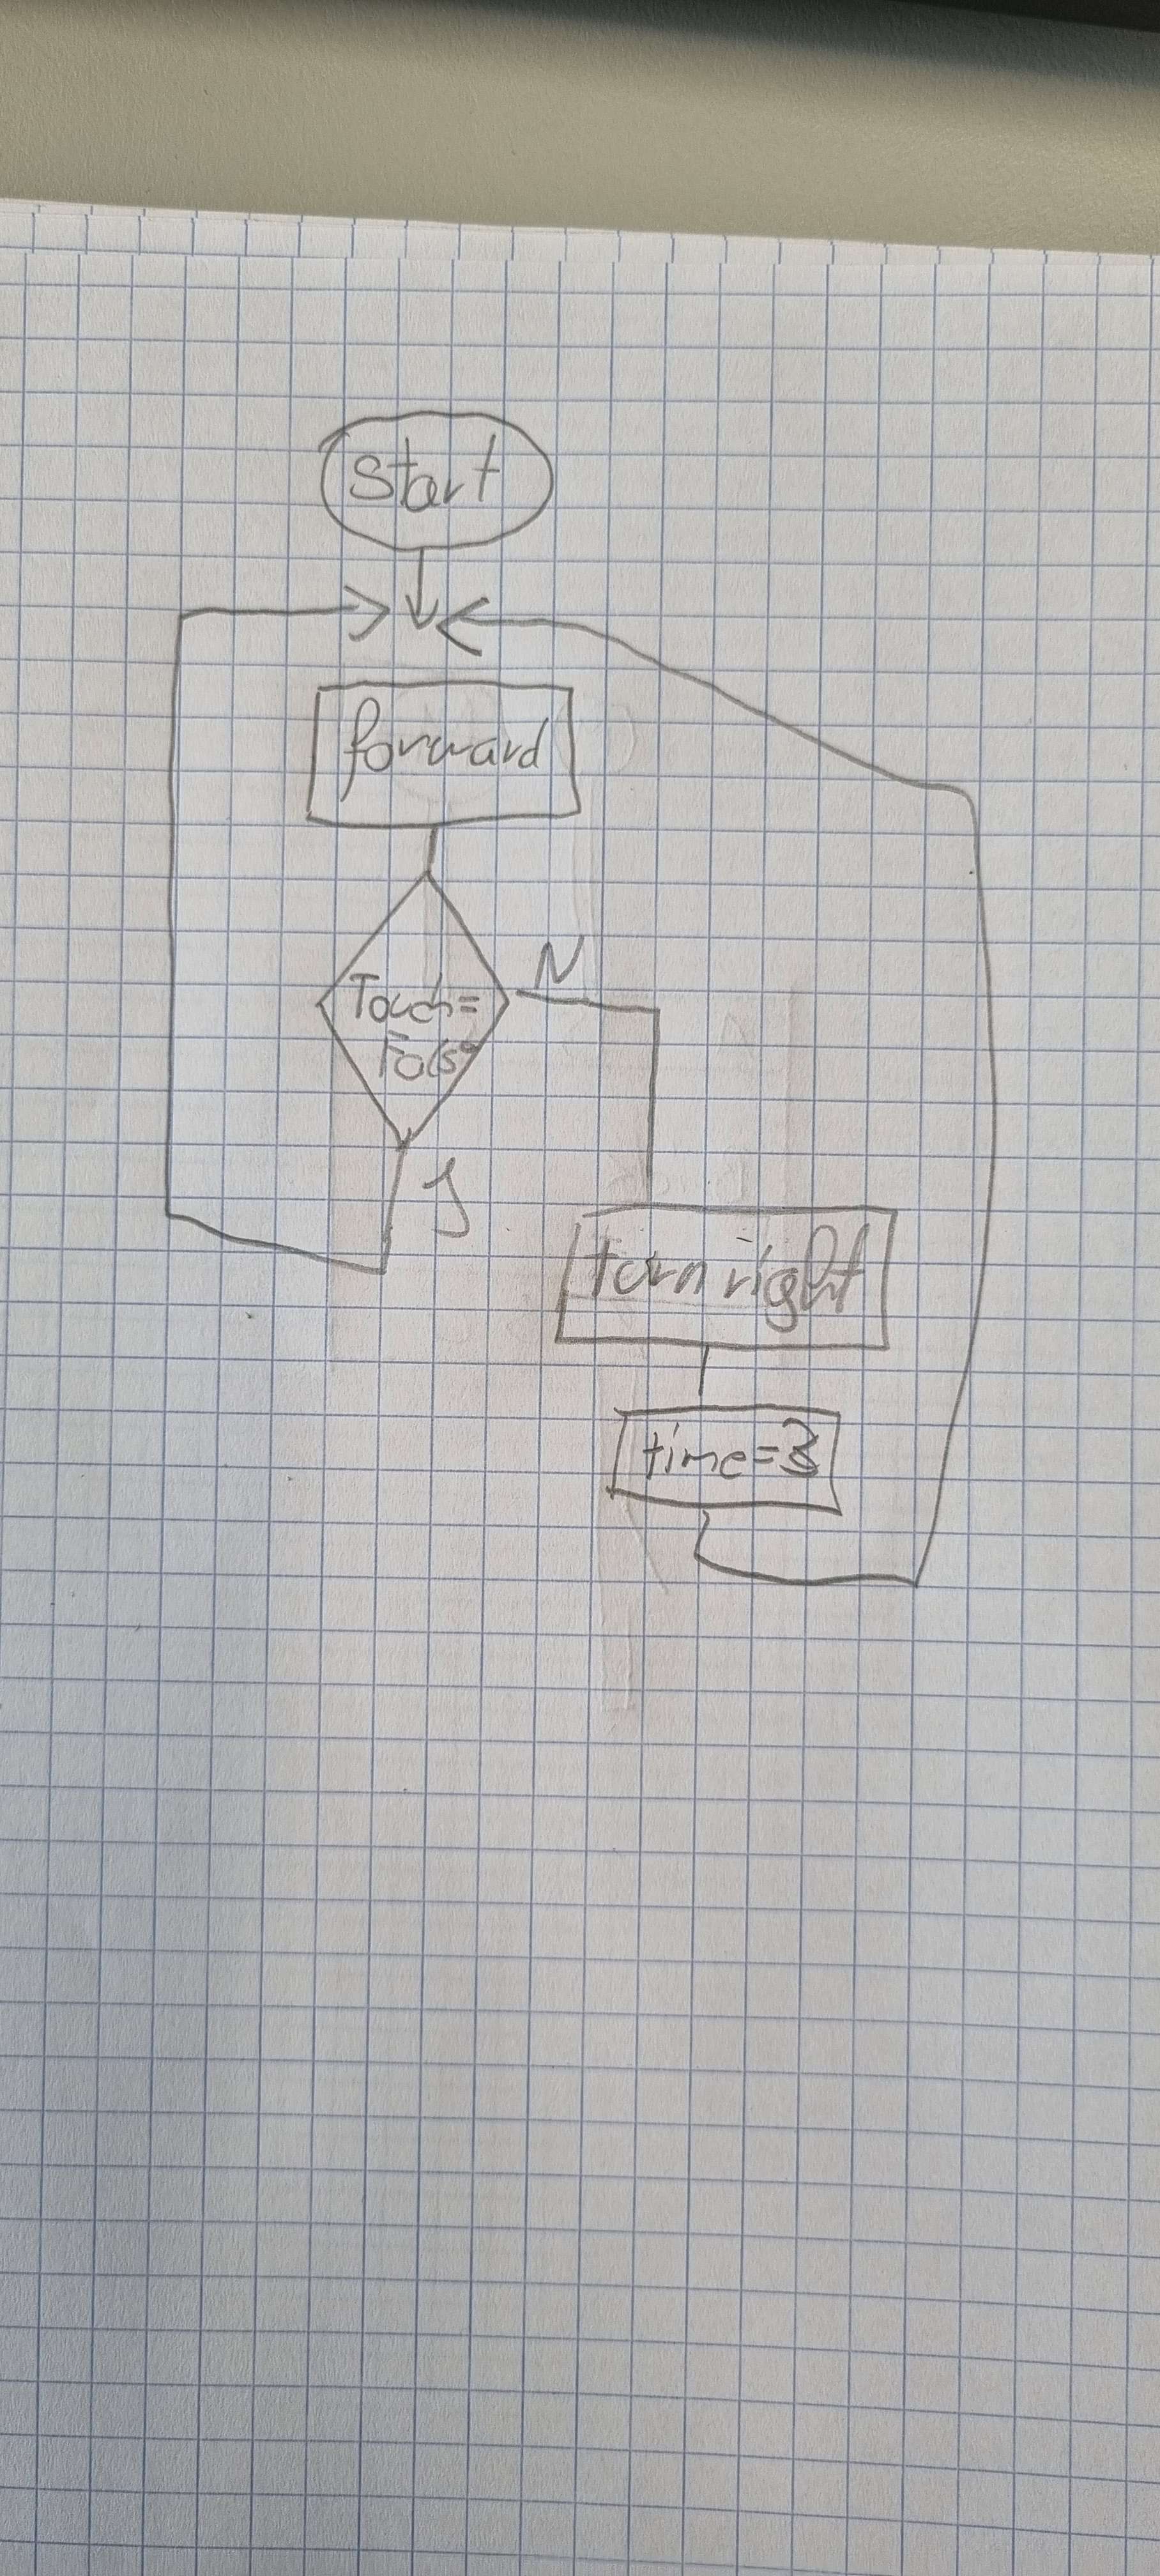 start
forward
N
Touch=
False
J
turn right
time=3